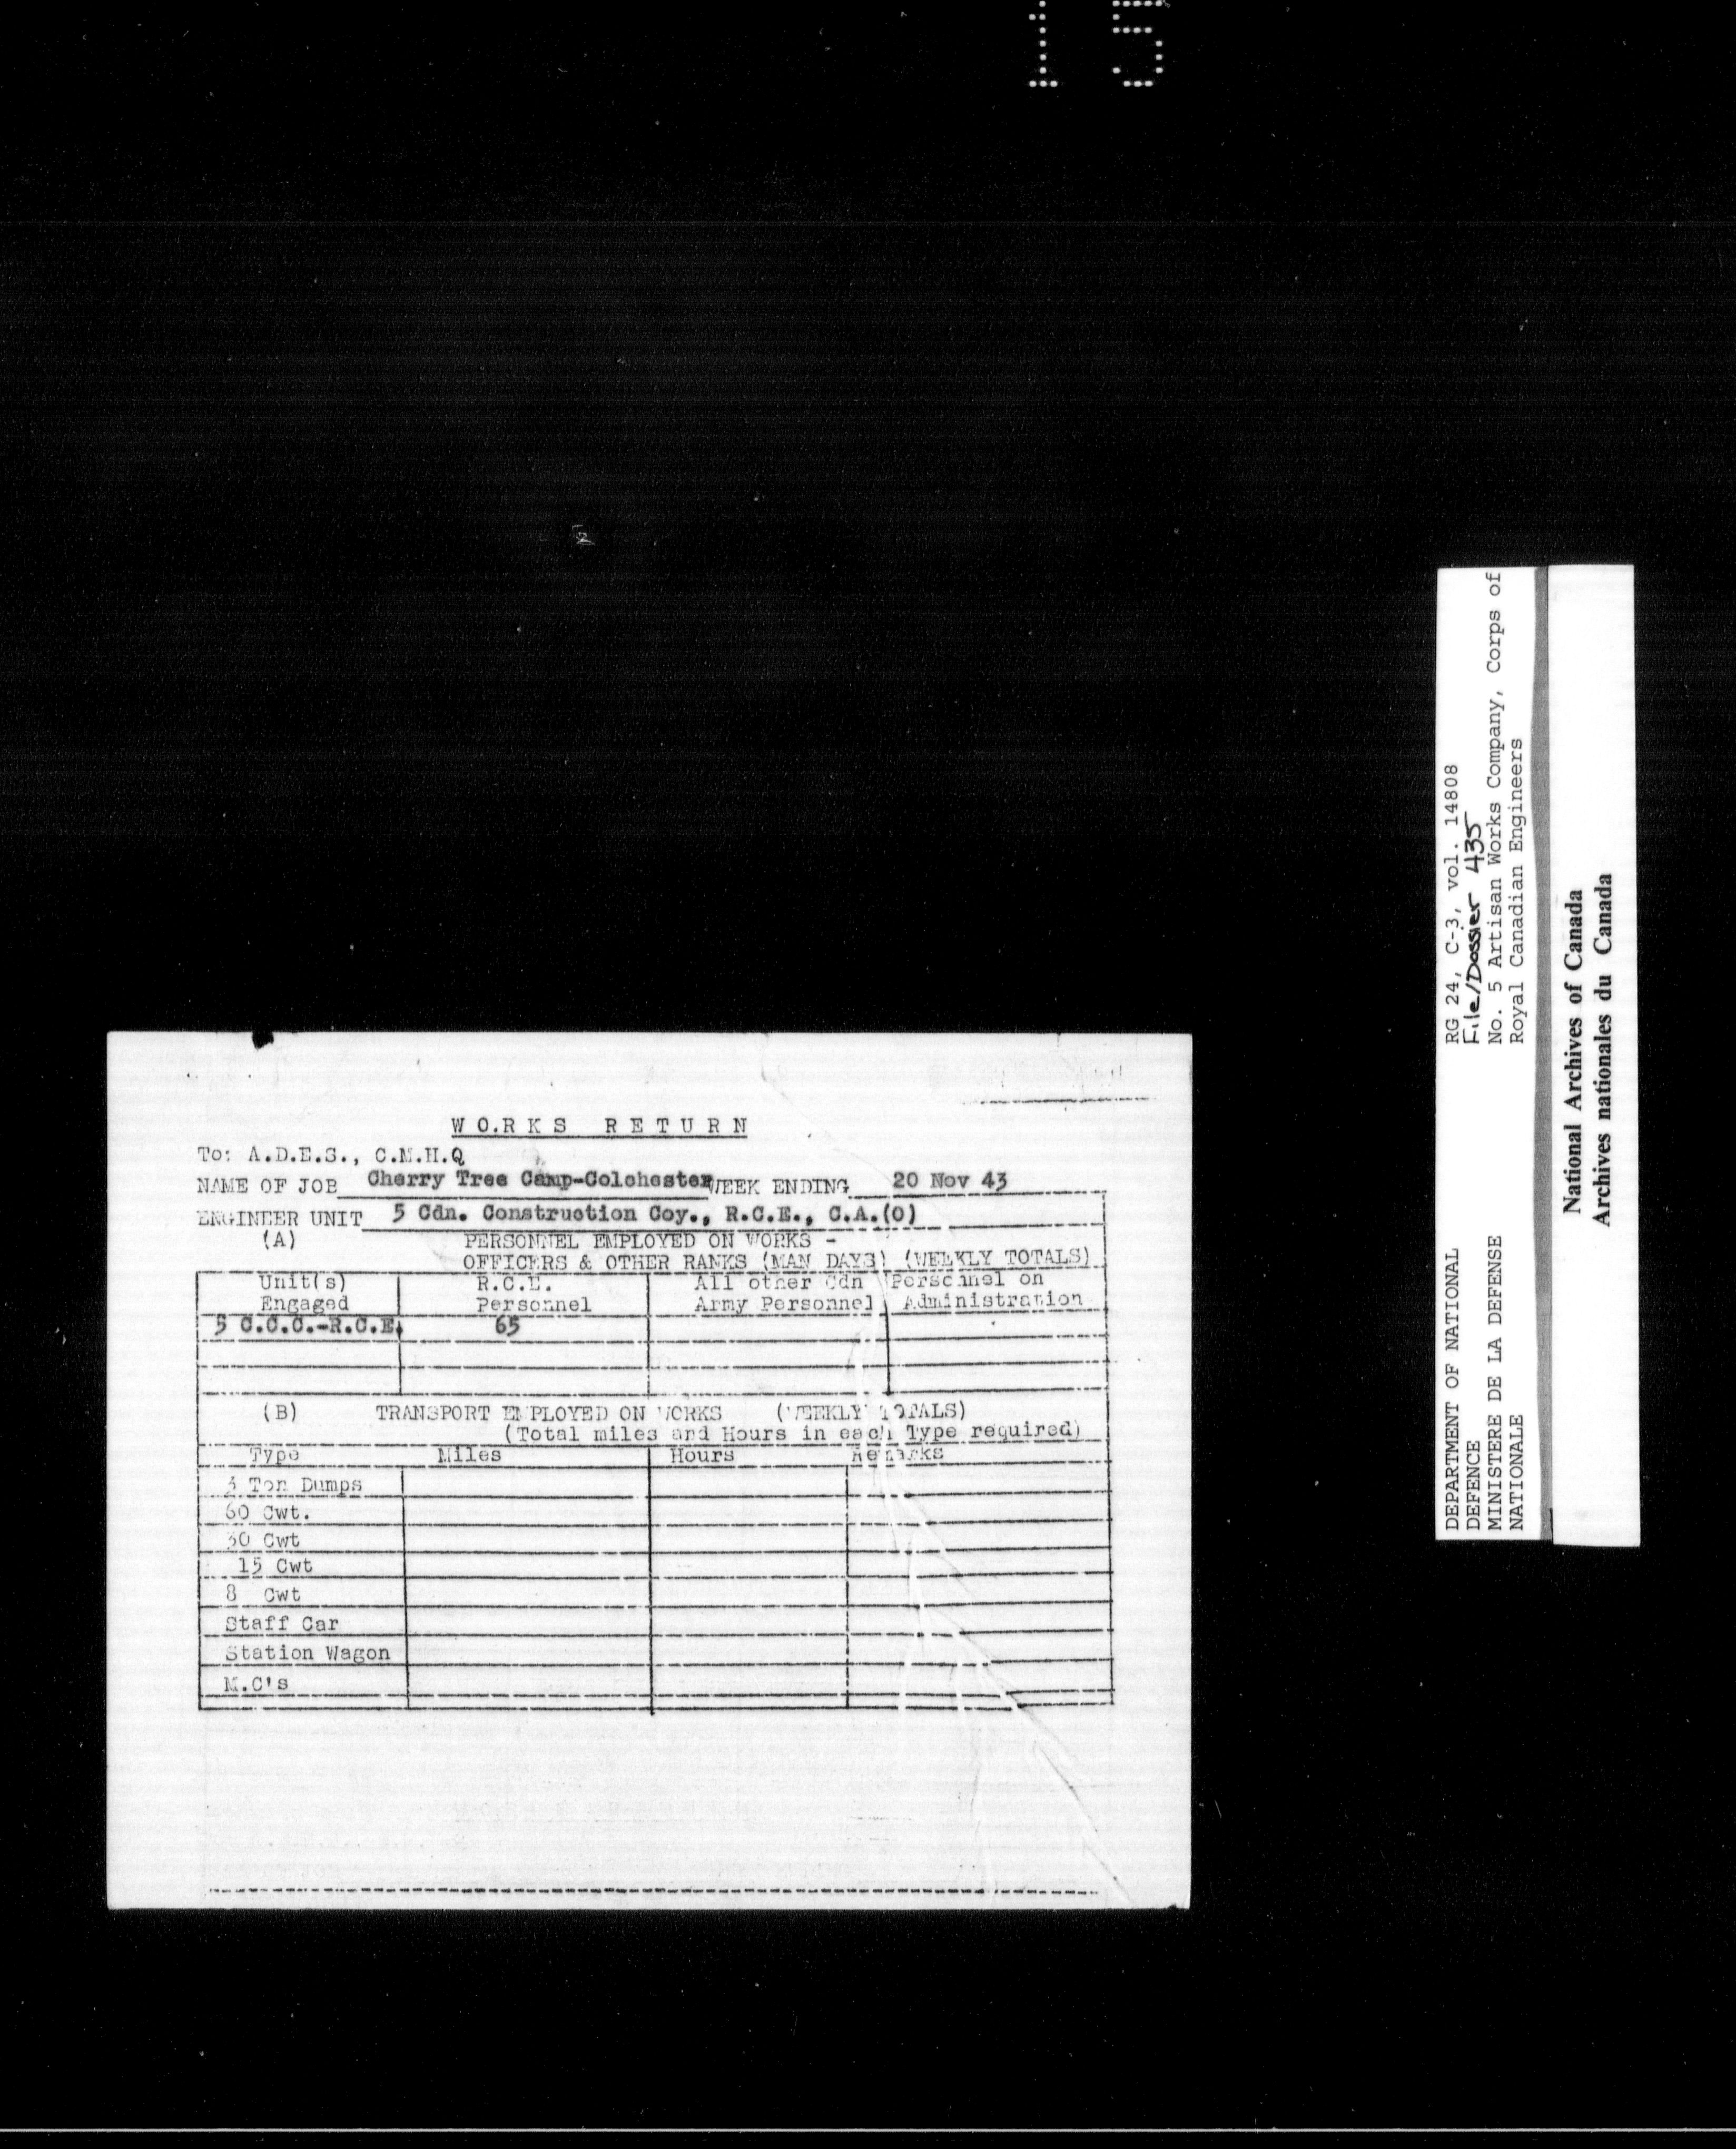 15
WO.RKS RETURN
To: A.D.E.S., C.M.H.Q
NAME OF JOB Cherry Tree Camp-Colchester WEEK ENDING 20 Nov 43
ENGINEER UNIT 5 Cdn. Construction Coy., R.C.E., C.A.(O)
(A) PERSONNEL EMPLOYED ON WORKS -
OFFICERS & OTHER RANKS (MAN DAYS) (WEEKLY TOTALS)
Unit(s) R.C.E. All other Cdn Personnel on
Engaged Personnel Army Personnel Administration
5 C.C.C.-R.C.E. 65
(B) TRANSPORT EMPLOYED ON WORKS (WEEKLY TOTALS)
(Total miles and Hours in each Type required)
Type Miles Hours Remarks
3 Ton Dumps
60 Cwt.
30 Cwt
15 Cwt
8 Cwt
Staff Car
Station Wagon
M.C's
DEPARTMENT OF NATIONAL
DEFENCE
MINISTERE DE LA DEFENSE
NATIONALE
RG 24, C-3, vol. 14808
File/Dossier 435
No. 5 Artisan Works Company, Corps of
Royal Canadian Engineers
National Archives of Canada
Archives nationales du Canada